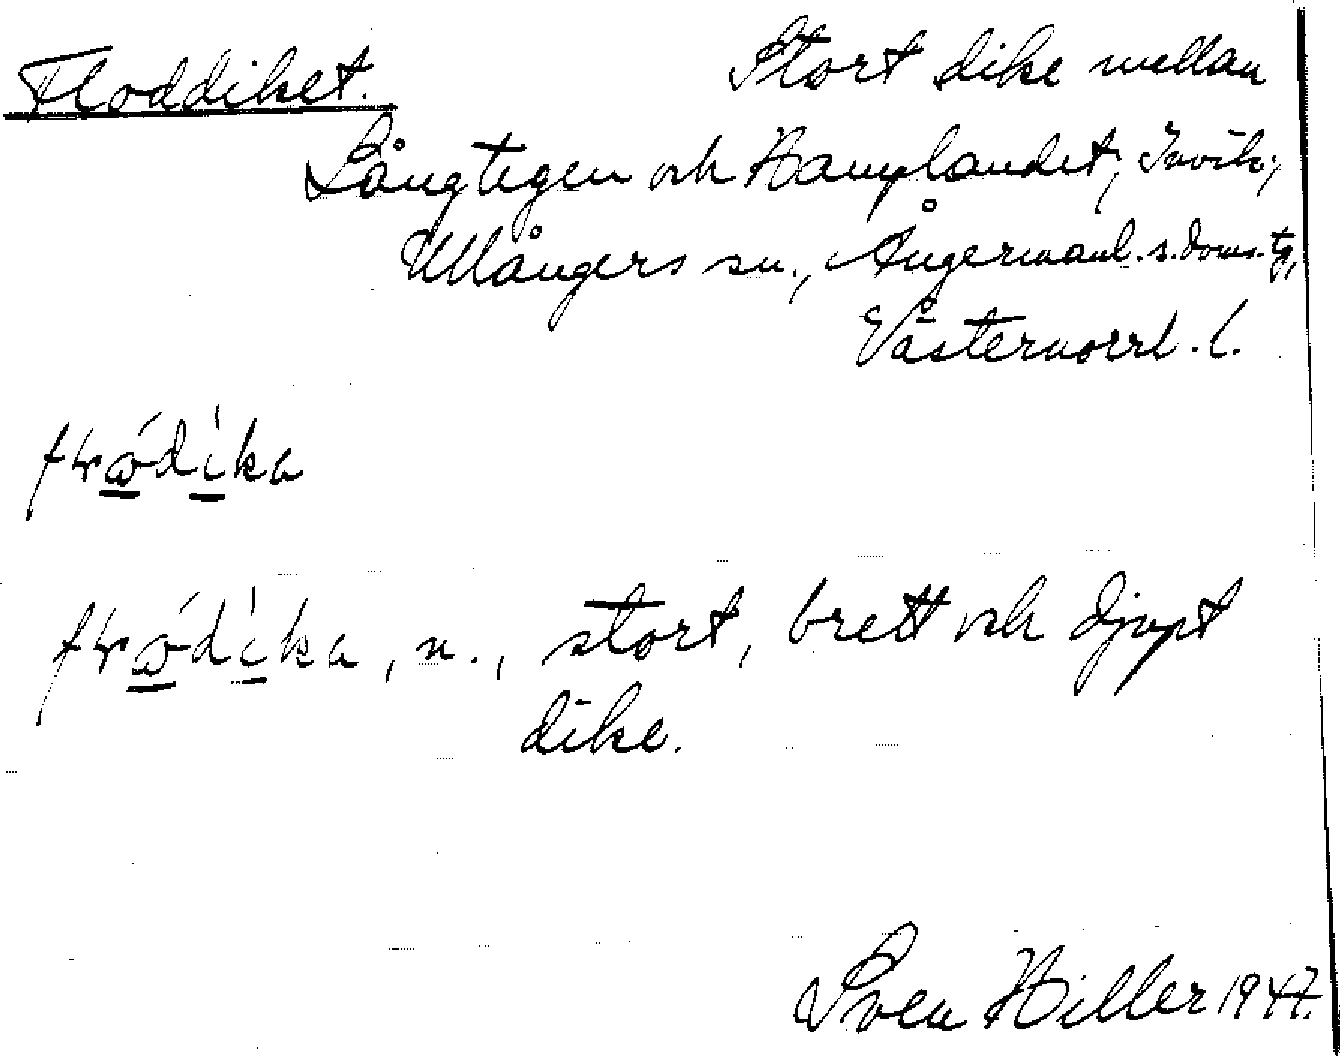 Floddiket. Stort dike mellan
Långtegen och Hamplandet, Invik,
Ullångers sn., Ångermanl. s. doms. tg,
Västernorrl. l.
dike.
stort, brett och djupt
Sven Hiller 1947.